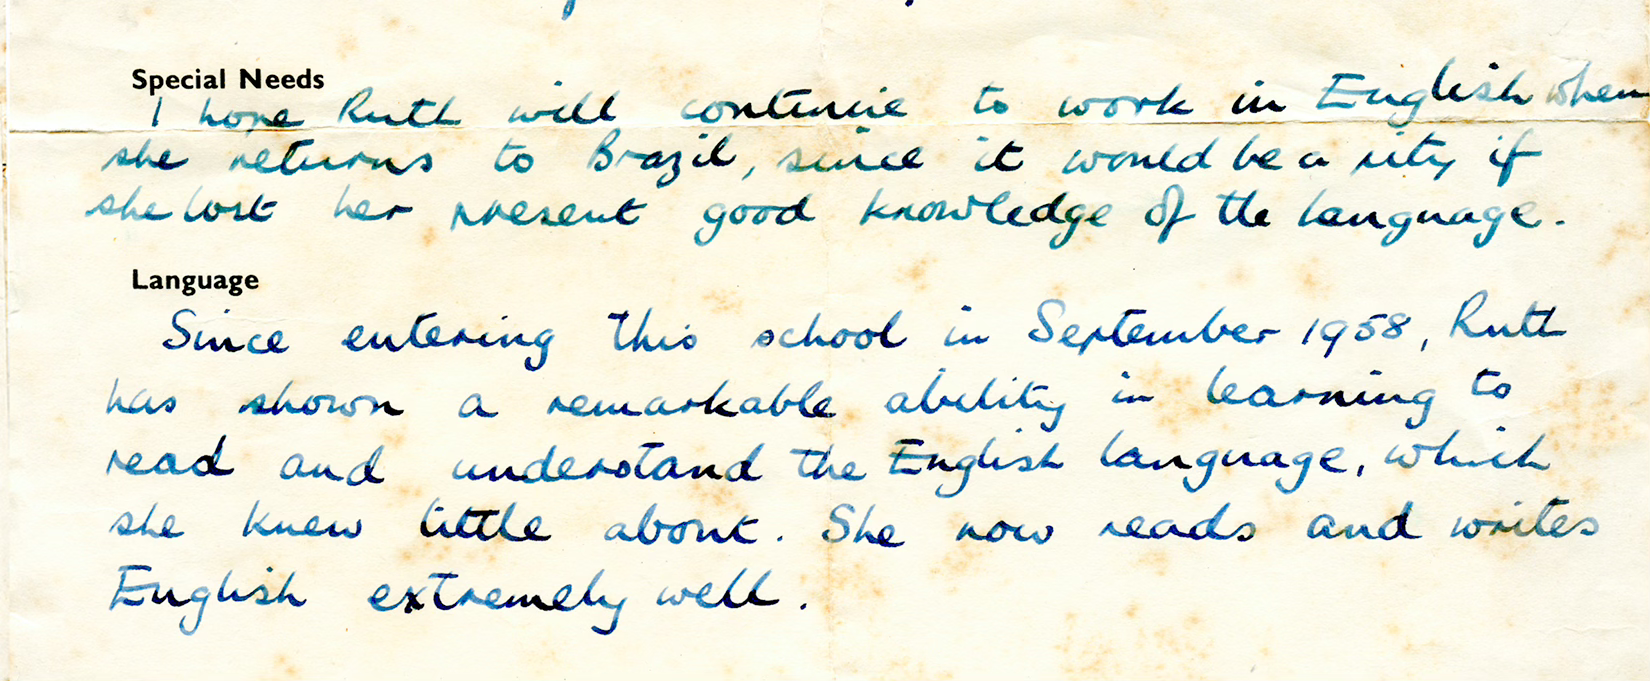 Special Needs
I hope Ruth will continue to work in English when
she returns to Brazil, since it would be a pity if
she lost her present good knowledge of the language.
Language
Since entering this school in September 1958, Ruth
has shown a remarkable ability in learning to
read and understand the English language, which
she knew little about. She now reads and writes
English extremely well.